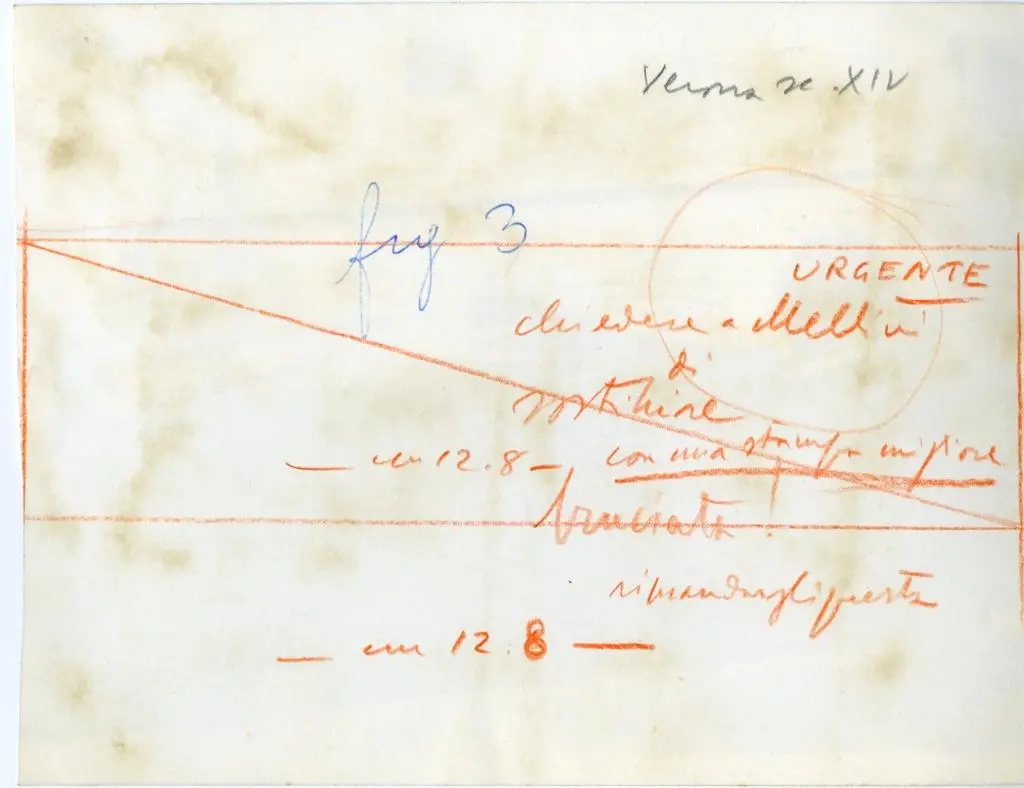 Verona sc. XIV
fig 3
URGENTE
chiedere a Mellini
di
sostituire
con una stampa migliore
— cm 12.8 —
bruciata !
rimandargli questa
— cm 12.8 —